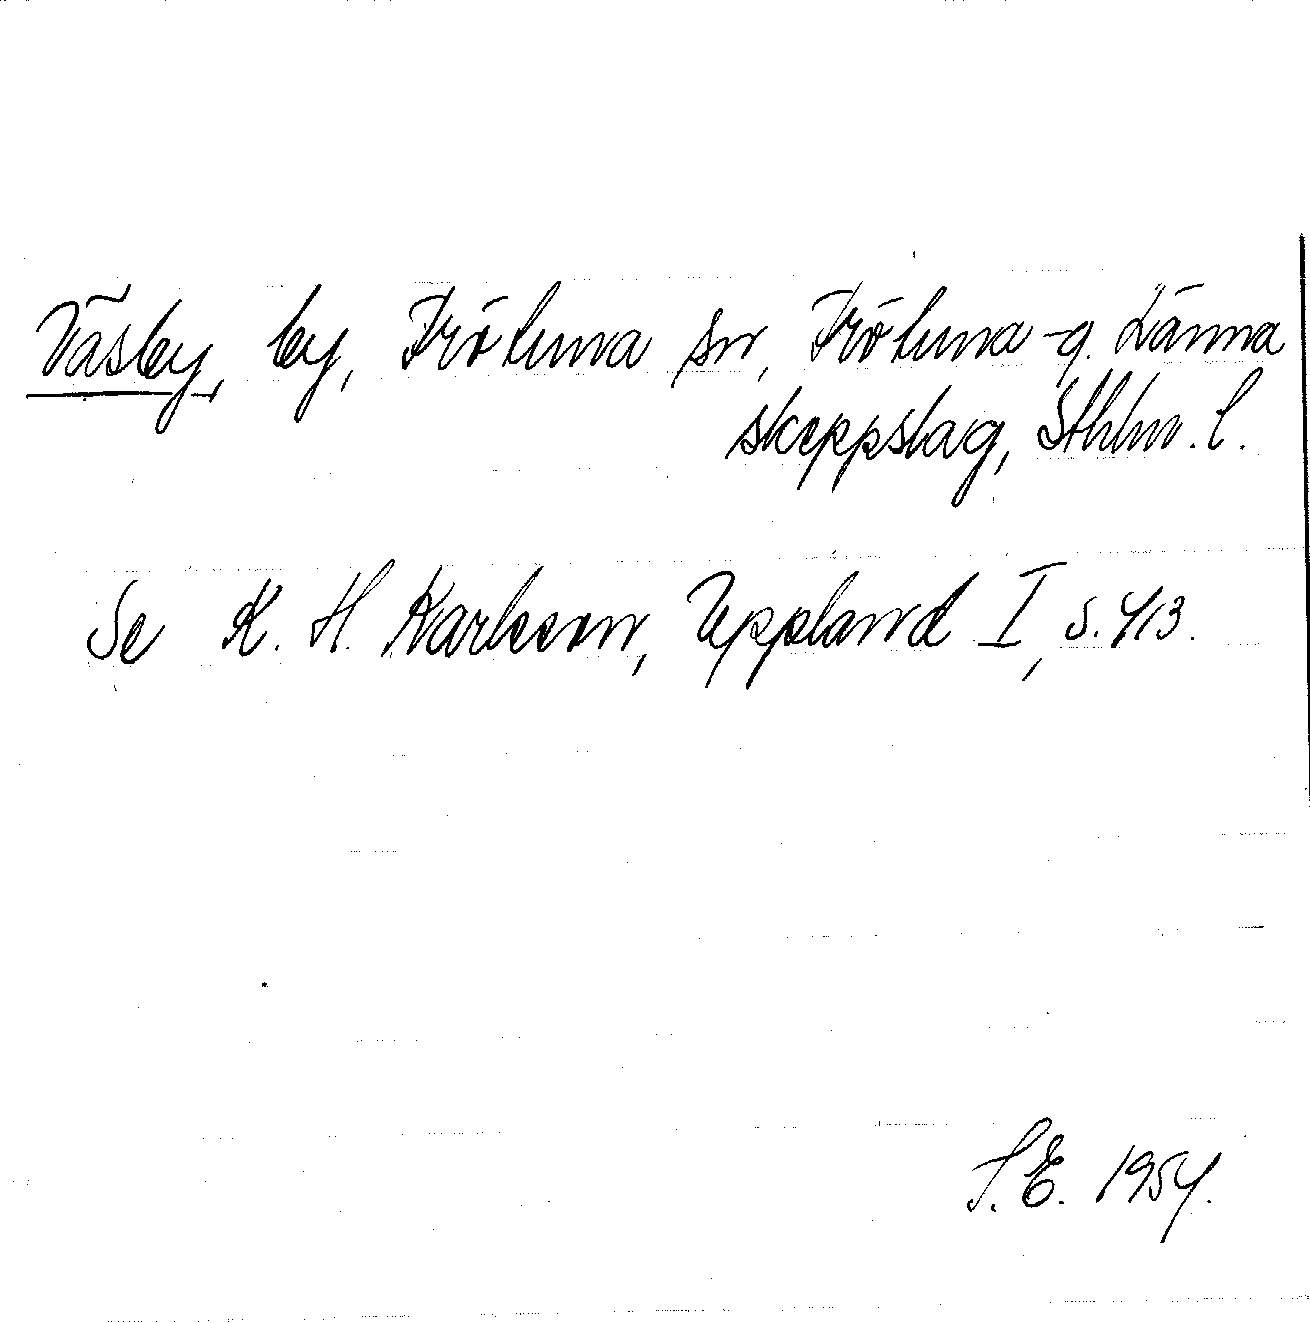 Väsby, by, Frötuna sn, Frötuna-o. Länna
skeppslag, Sthlm. l.
Se K. H. Karlsson, Uppland I, s. 413.
S.E. 1954.